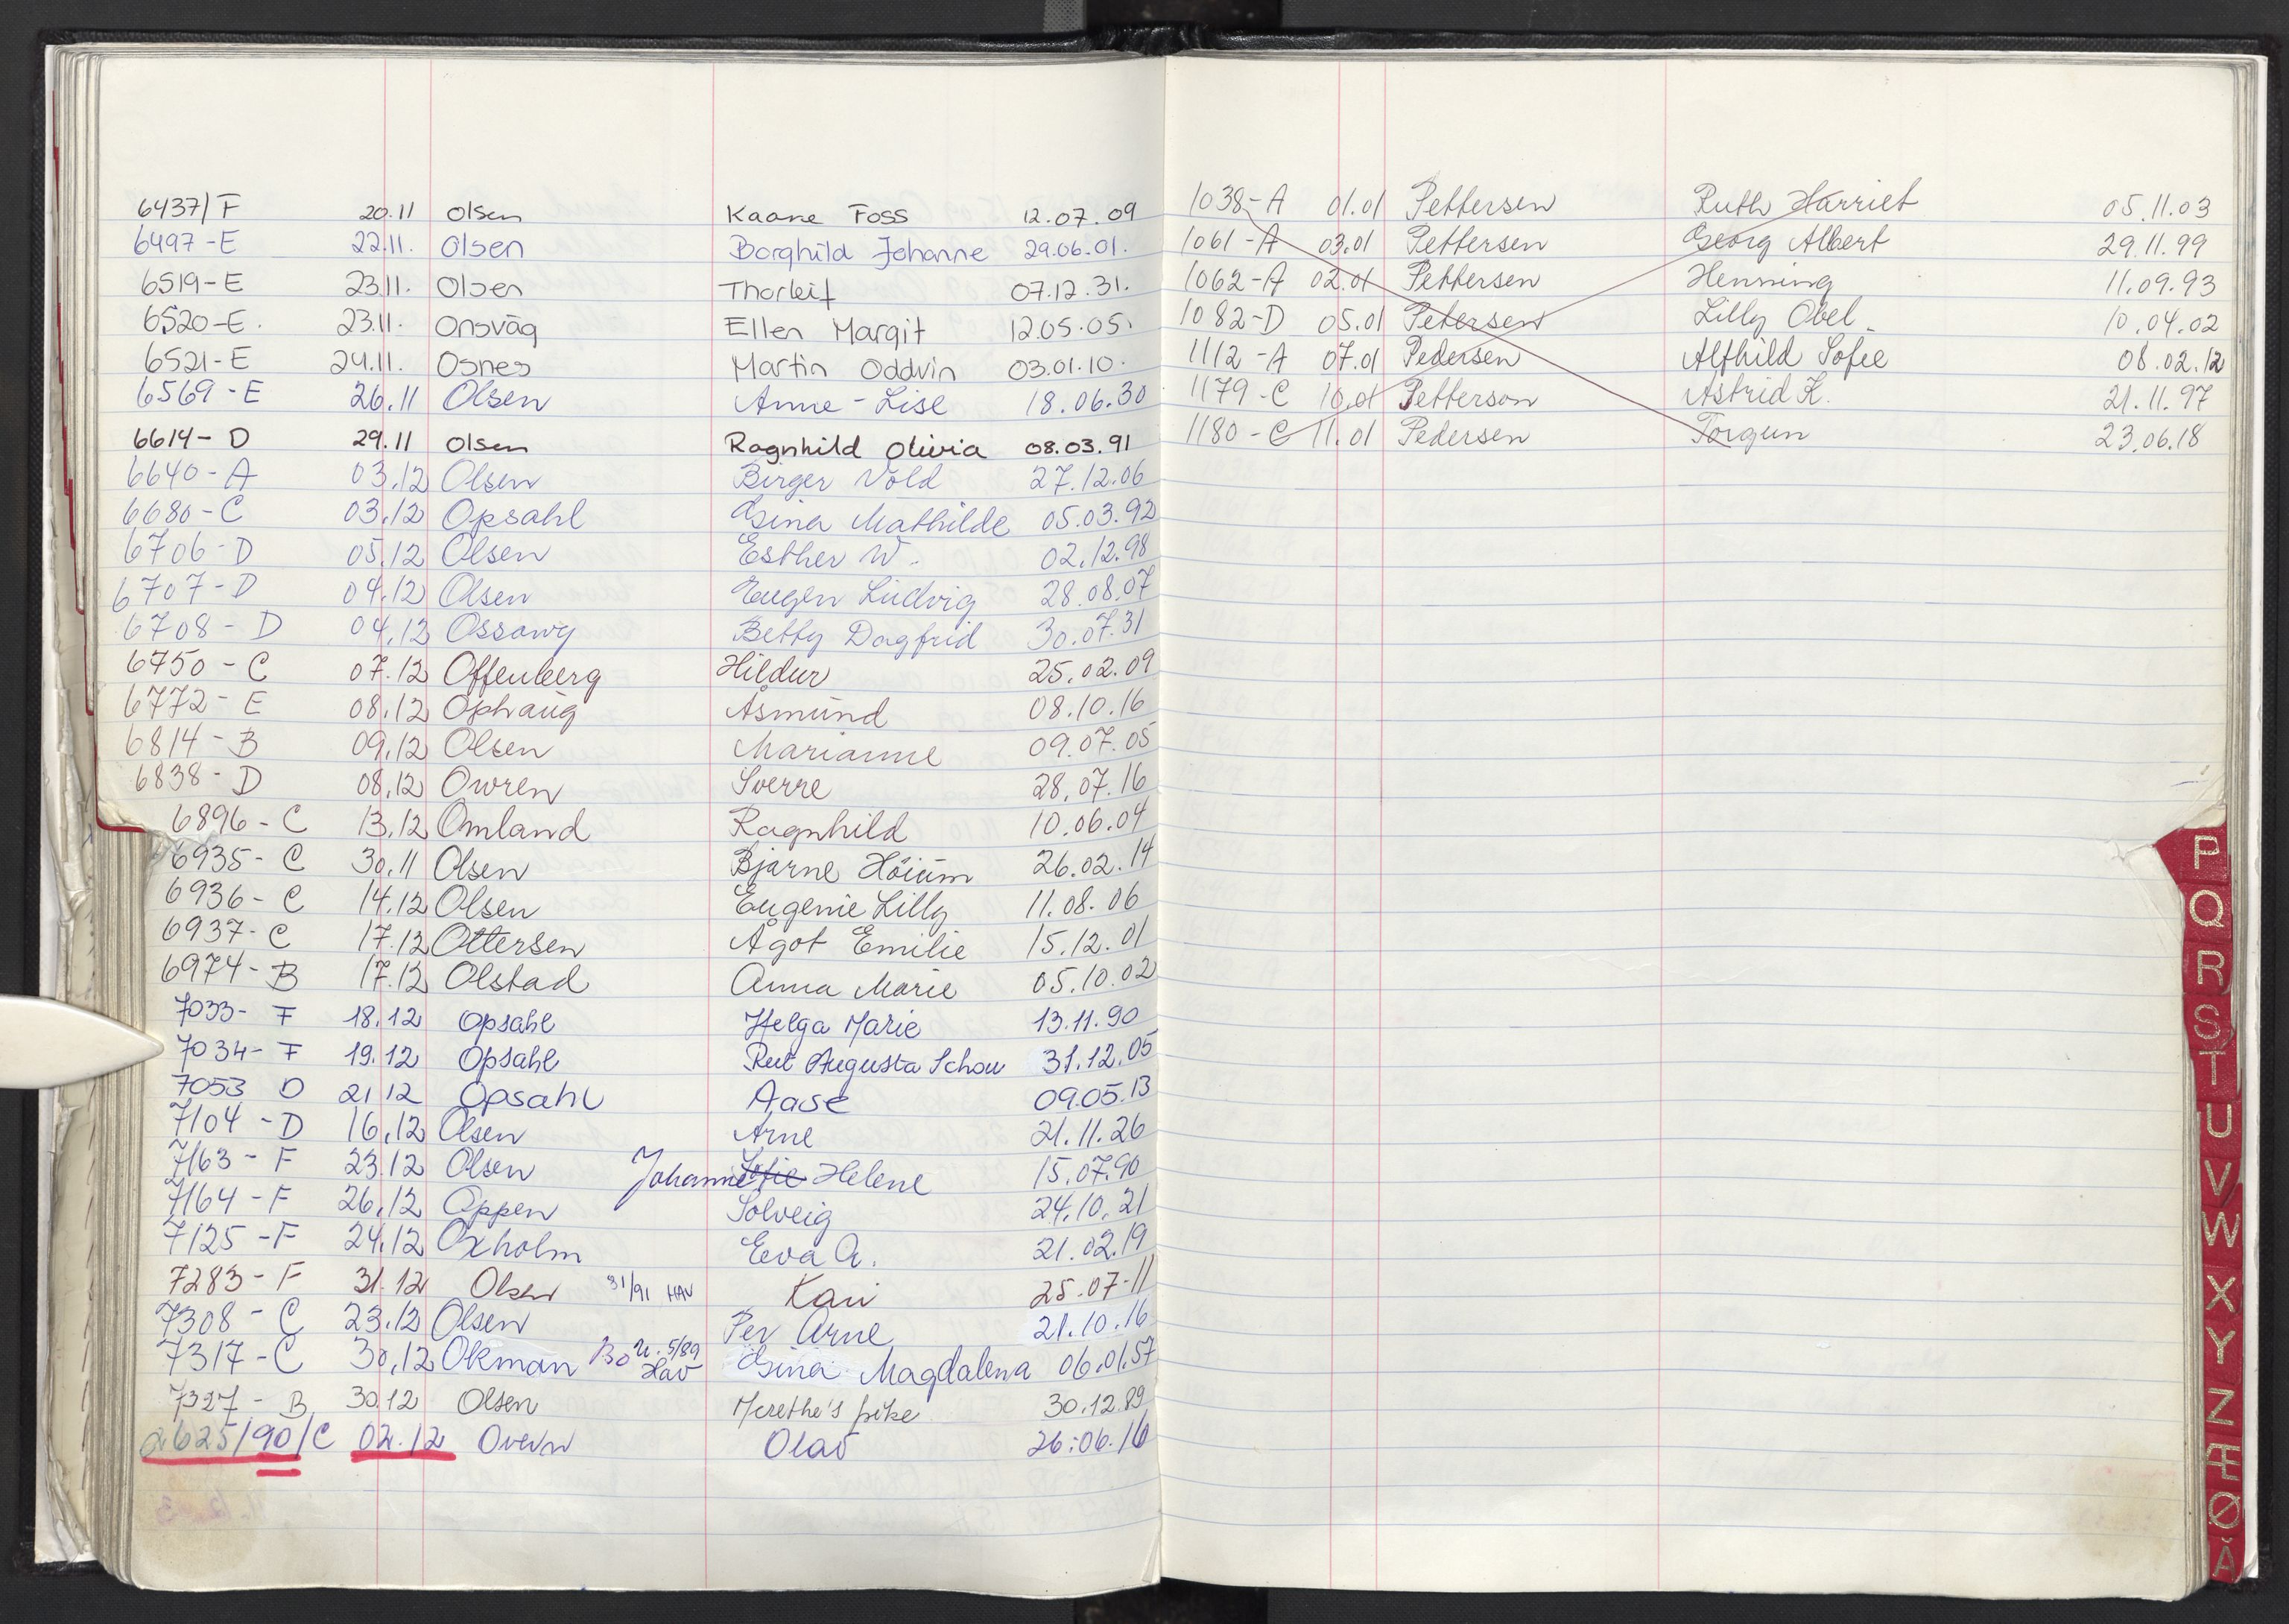 6437/F 20.11 Olsen Kaare Foss 12.07.09
6497-E 22.11. Olsen Borghild Johanne 29.06.01.
6519-E 23.11. Olsen Thorleif 07.12.31.
6520-E. 23.11. Onsvåg Ellen Margit 12.05.05.
6521-E 24.11. Osnes Martin Oddvin 03.01.10.
6569-E 26.11 Olsen Anne-Lise 18.06.30
6614-D 29.11 Olsen Ragnhild Olivia 08.03.91
6640-A 03.12 Olsen Birger Vold 27.12.06
6680-C 03.12 Opsahl Gina Mathilde 05.03.92
6706-D 05.12 Olsen Esther W. 02.12.98
6707-D 04.12 Olsen Eugen Ludvig 28.08.07
6708-D 04.12 Ossowy Betty Dagfrid 30.07.31
6750-C 07.12 Offenberg Hildur 25.02.09
6772-E 08.12 Ophaug Åsmund 08.10.16
6814-B 09.12 Olsen Marianne 09.07.05
6838-D 08.12 Owren Sverre 28.07.16
6896-C 13.12 Omland Ragnhild 10.06.04
6935-C 30.11 Olsen Bjarne Höium 26.02.14
6936-C 14.12 Olsen Eugenie Lilly 11.08.06
6937-C 17.12 Ottersen Ågot Emilie 15.12.01
6974-B 17.12 Olstad Anna Marie 05.10.02
7033-F 18.12 Opsahl Helga Marie 13.11.90
7034-F 19.12 Opsahl Rut Augusta Schou 31.12.05
7053 D 21.12 Opsahl Aase 09.05.13
7104-D 16.12 Olsen Arne 21.11.26
7163-F 23.12 Olsen Johanne Sofie Helene 15.07.90
7164-F 26.12 Oppen Solveig 24.10.21
7125-F 24.12 Oxholm Eva A. 21.02.19
7283-F 31.12 Olsen 31/91 HAV Kari 25.07-11
7308-C 23.12 Olsen Per Arne 21.10.16
7317-C 30.12 Okman Bo U. 5/89 Hav Gina Magdalena 06.01.57
7327-B 30.12 Olsen Merethe's pike 30.12.89
2625/90/C 02.12 Overn Olav 26.06.16
1038-A 01.01 Pettersen Ruth Harriet 05.11.03
1061-A 03.01 Pettersen Georg Albert 29.11.99
1062-A 02.01 Pettersen Henning 11.09.93
1082-D 05.01 Petersen Lilly Obel 10.04.02
1112-A 07.01 Pedersen Alfhild Sofie 08.02.12
1179-C 10.01 Petterson Astrid K. 21.11.97
1180-C 11.01 Pedersen Torgun 23.06.18
P
Q
R
S
T
U
V
W
X
Y
Z
Æ
Ø
Å